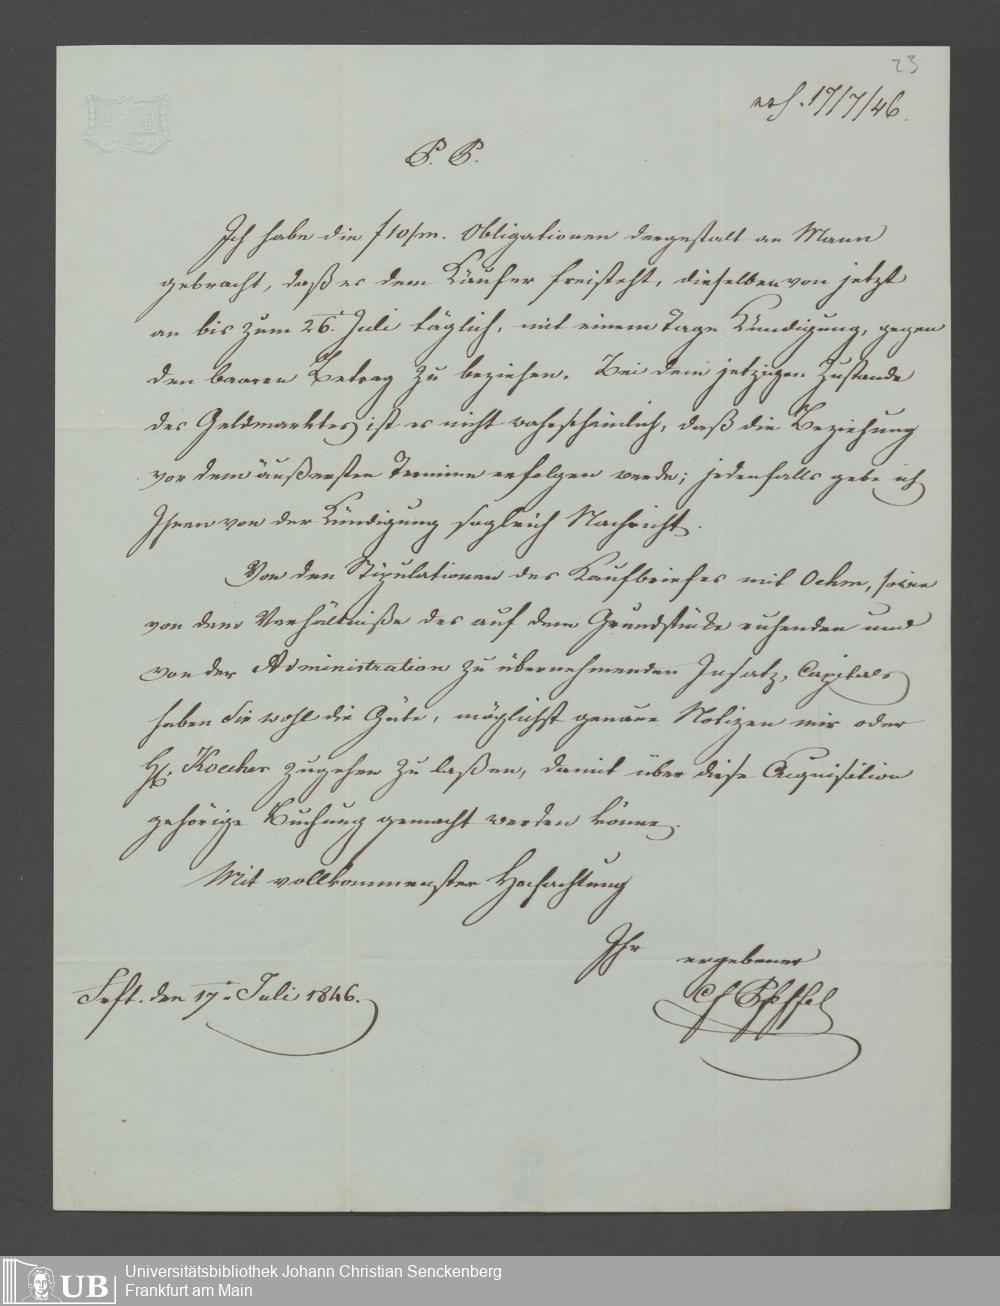 23
erh. 17/7/46.
P. P.
Ich habe die f 10/m. Obligationen dergestalt an Mann
gebracht, daß es dem Käufer freisteht, dieselben von jetzt
an bis zum 26. Juli täglich, mit einem Tage Kündigung, gegen
den baaren Betrag zu beziehen. Bei dem jetzigen Zustande
des Geldmarktes ist es nicht wahrscheinlich, daß die Beziehung
vor dem äußersten Termine erfolgen werde; jedenfalls gebe ich
Ihnen von der Kündigung sogleich Nachricht.
Von den Stipulationen des Kaufbriefes mit Oehm, sowie
von dem Verhältniße des auf dem Grundstücke ruhenden und
von der Administration zu übernehmenden Insatz-Capitals
haben Sie wohl die Güte, möglichst genaue Notizen mir oder
H. zugehen zu laßen, damit über diese Acquisition
gehörige Buchung gemacht werden könne.
Mit vollkommenster Hochachtung
Ihr ergebener
Frft. den 17. Juli 1846.
UB
Universitätsbibliothek Johann Christian Senckenberg
Frankfurt am Main